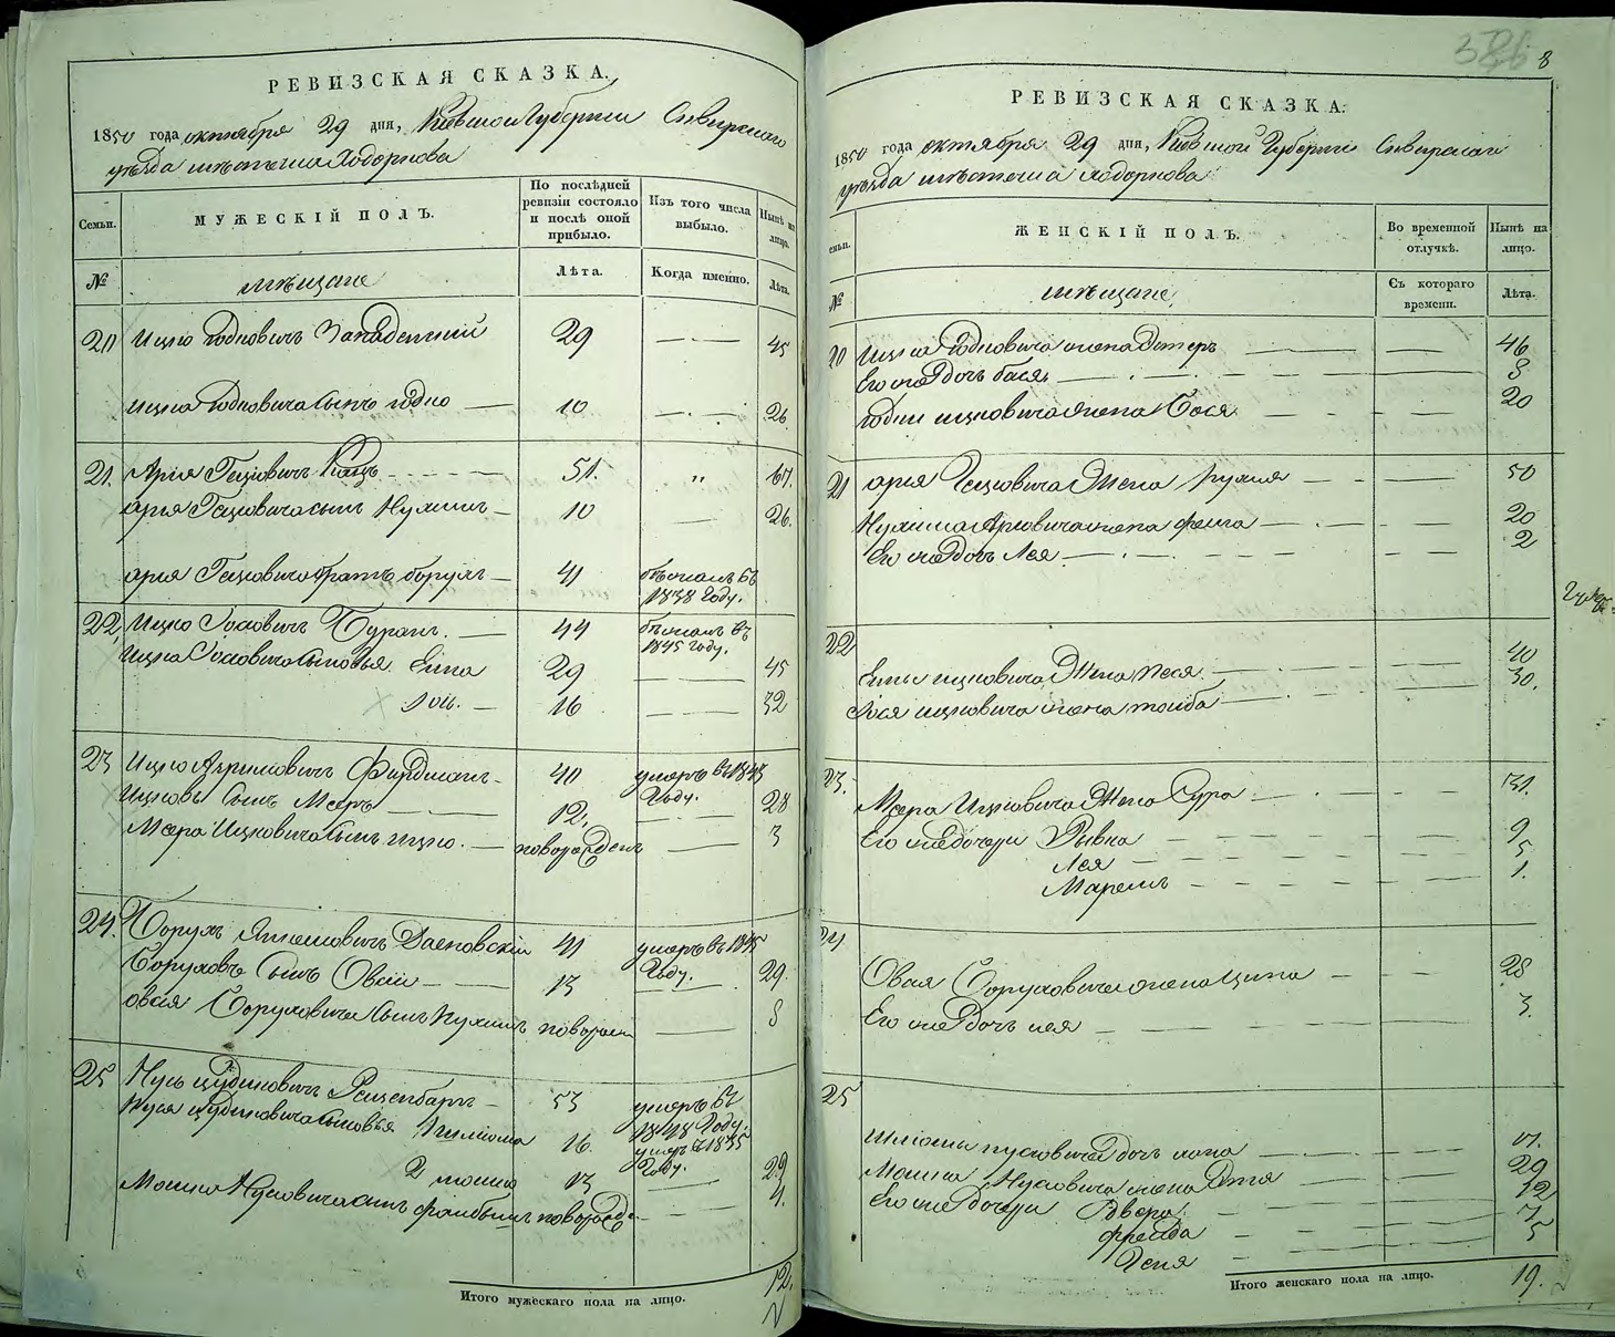 РЕВИЗСКАЯ СКАЗКА.
1850 года октября 29 дня, Киевской Губернии Сквирскаго
уѣзда мѣстечка Ходоркова
Семьи.
МУЖЕСКІЙ ПОЛЪ.
По послѣдней ревизіи состояло и послѣ оной прибыло.
Изъ того числа выбыло.
Нынѣ на лицо.
№
мѣщане
Лѣта.
Когда именно.
Лѣта.
20 Ицко Іодковичъ 29 45
Ицка Іодковича сынъ Іодко 10 26.
21. Арія Гецковичъ Кацъ 51. „ 67.
Арія Гецковича сынъ Нухимъ 10 26.
Арія Гецковича братъ Борухъ 41 бѣжалъ въ
1838 Году.
22, Ицко Іосіовичъ Буракъ. 44 бѣжалъ въ
1845 Году.
Ицка Іосіовича сыновья Елна 29 45
Іось. 16 32
23 Ицко Абрумовичъ Фурдманъ 40 умеръ въ 1843
Году.
Ицковъ сынъ Мееръ 12. 28
Меера Ицковича сынъ Ицко. новорожденъ 3
24. Борухъ 41 умеръ въ 1845
Году.
Боруховъ сынъ Овсій 13 29.
Овсія Боруховича сынъ Нухимъ новорожден 8
25 Нусь 53 умеръ въ
1848 Году.
Нуся сыновья Шлиома 16. умеръ в 1835
Году.
2 Мошко 13 29
Мошка Нусовича сынъ Фаибышъ новорожде 4.
Итого мужескаго пола на лицо. 12.
8
РЕВИЗСКАЯ СКАЗКА.
1850 года октября 29 дня, Киевской Губерніи Сквирскаго
уѣзда мѣстечка Ходоркова
Семьи.
ЖЕНСКІЙ ПОЛЪ.
Во временной отлучкѣ.
Нынѣ на лицо.
№
мѣщане
Съ котораго времени.
Лѣта.
20 Ицка Іодковича жена Эстеръ 46
Его же дочь Бася 8
Іодки Ицковича жена Бося 20
21 Арія Гецковича жена Рухля 50
Нухима Аріовича жена Феига 20
Его же дочь Лея 2
22 Елны Ицковича жена Песя 40
Іося Ицковича жена Тойба 30.
23. Меера Ицковича жена Сура 31.
Его же дочери Рывка 9
Лея 5
Маремъ 1.
24 Овсія Боруховича жена Ципа 28
Его же дочь Лея 3.
25
Шлиомы Нусовича дочь 17.
Мошка Нусовича жена Этя 29
Его же дочери Двера 12
Фреида 7
Геня 5
Итого женскаго пола на лицо. 19.